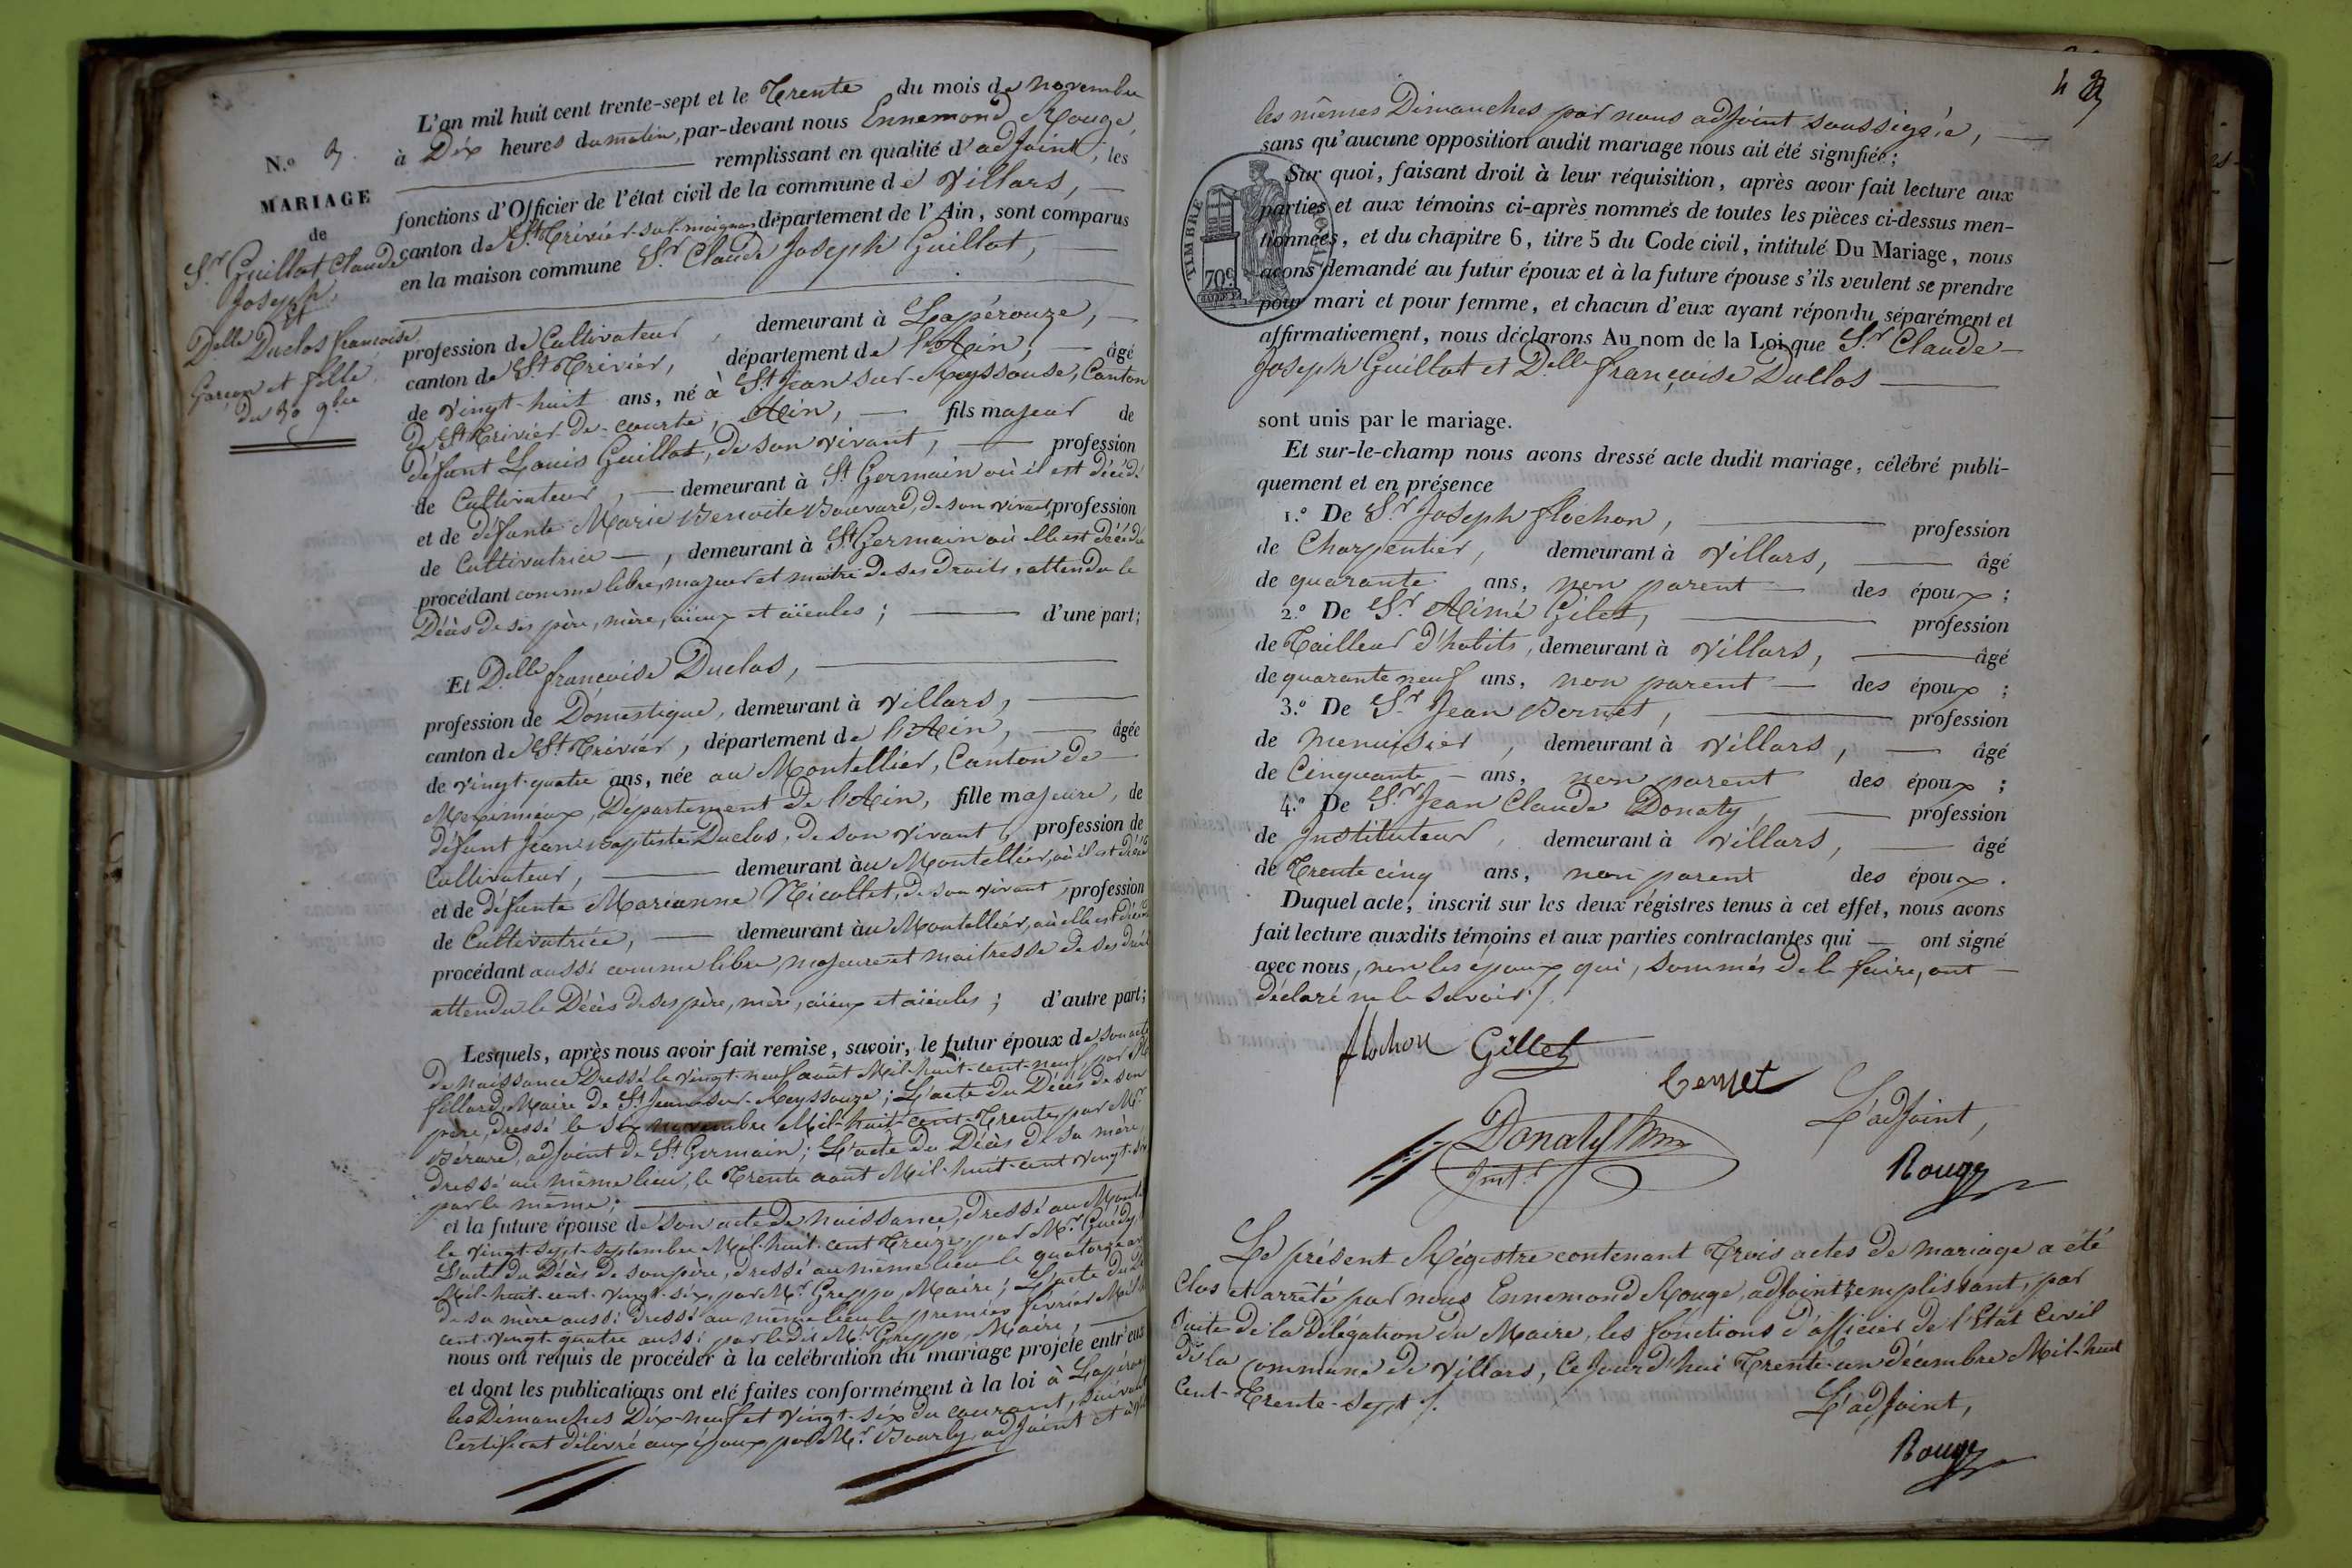 N.º 3.
MARIAGE
de
Sr Guillot Claude
Joseph
Et
Delle Duclos françoise
Garçon et fille
du 30 9bre
L'an mil huit cent trente-sept et le Trente du mois de novembre
à Dix heures du matin, par-devant nous Ennemond Rouge,
remplissant en qualité d'adjoint, les
fonctions d'Officier de l'état civil de la commune de Villars,
canton de St Trivier-sur-moignans département de l'Ain, sont comparus
en la maison commune Sr Claude Joseph Guillot,
profession de Cultivateur, demeurant à Lapérouze,
canton de St Trivier, département de l'Ain, âgé
de vingt-huit ans, né à St Jean sur-Reyssouse, Canton
de St Trivier-de-courte, Ain, fils majeur de
défunt Louis Guillot, de son vivant, profession
de Cultivateur, demeurant à St Germain où il est décédé
et de défunte Marie Benoite Bouvard, de son vivant, profession
de Cultivatrice, demeurant à St Germain où elle est décédée
procédant comme libre, majeur et maître de ses droits, attendu le
Décès de ses père, mère, aïeux et aïeules; d'une part;
Et Delle françoise Duclos,
profession de Domestique, demeurant à Villars,
canton de St Trivier, département de l'Ain, âgée
de vingt-quatre ans, née au Montellier, Canton de
Meximieux, Département de l'Ain, fille majeure, de
défunt Jean Baptiste Duclos, de son vivant, profession de
Cultivateur, demeurant àu Montellier, où il est décédé
et de défunte Marianne Nicollet, de son vivant, profession
de Cultivatrice, demeurant àu Montellier, où elle est décédée
procédant aussi comme libre, majeure et maitresse de ses droits
attendu le Décès de ses père, mère, aïeux et aïeules; d'autre part;
Lesquels, après nous avoir fait remise, savoir, le futur époux de son acte
de naissance Dressé le vingt-neuf août Mil-huit-cent-neuf, par Mr
fillard, Maire de St Jean-sur-Reyssouze; L'acte du Décès de son
père, dressé le six novembre Mil-huit-cent-Trente, par Mr
Bérard, adjoint de St Germain; L'acte du Décès de sa mère,
dressé au même lieu, le Trente août Mil-huit-cent vingt-six
par le même;
et la future épouse de son acte de naissance, dressé au Mont
le vingt-sept septembre Mil-huit-cent Treize, par Mr Guédy,
L'acte du Décès de son père, dressé au même lieu le quatorze
Mil-huit-cent-vingt-six, par Mr Greppo, Maire; L'acte du Dé
de sa mère aussi dressé au même lieu le premier février Mil
cent-vingt-quatre aussi par le dit Mr Greppo, Maire,
nous ont requis de procéder à la celébration du mariage projeté entr'eux
et dont les publications ont eté faites conformément à la loi à Lapérouze
les Dimanches Dix-neuf et vingt-six du courant, suivant
Certificat délivré aux époux par Mr Bourly adjoint et à
43
les mêmes Dimanches par nous adjoint soussigné,
sans qu'aucune opposition audit mariage nous ait été signifiée;
Sur quoi, faisant droit à leur réquisition, après avoir fait lecture aux
parties et aux témoins ci-après nommés de toutes les pièces ci-dessus men-
tionnées, et du chapitre 6, titre 5 du Code civil, intitulé Du Mariage, nous
avons demandé au futur époux et à la future épouse s'ils veulent se prendre
pour mari et pour femme, et chacun d'eux ayant répondu séparément et
affirmativement, nous déclarons Au nom de la Loi que Sr Claude
Joseph Guillot et Delle françoise Duclos
sont unis par le mariage.
Et sur-le-champ nous avons dressé acte dudit mariage, célébré publi-
quement et en présence
1.º De Sr Joseph flochon, profession
de Charpentier, demeurant à Villars, âgé
de quarante ans, non parent des époux;
2.º De Sr Aimé Gilet, profession
de Tailleur d'habits, demeurant à Villars, âgé
de quarante neuf ans, non parent des époux;
3.º De Sr Jean Bernet, profession
de menuisier, demeurant à Villars, âgé
de Cinquante ans, non parent des époux;
4.º De Sr Jean Claude Donaty, profession
de Instituteur, demeurant à Villars, âgé
de Trente cinq ans, non parent des époux.
Duquel acte, inscrit sur les deux régistres tenus à cet effet, nous avons
fait lecture auxdits témoins et aux parties contractantes qui ont signé
avec nous, non les époux qui, sommés de le faire, ont
déclaré ne le savoir./.
flochon Gillet
Bernet
L'adjoint,
Donaty
Instr
Rouge
Le présent Régistre contenant Trois actes de mariage a été
Clos et arrêté par nous Ennemond Rouge, adjoint remplissant, par
suite de la Délégation du Maire, les fonctions d'officier de l'Etat Civil
de la Commune de Villars, Ce jourd'hui Trente-un décembre Mil-huit
Cent-Trente-Sept /.
L'adjoint,
Rouge
TIMBRE ROYAL
70c